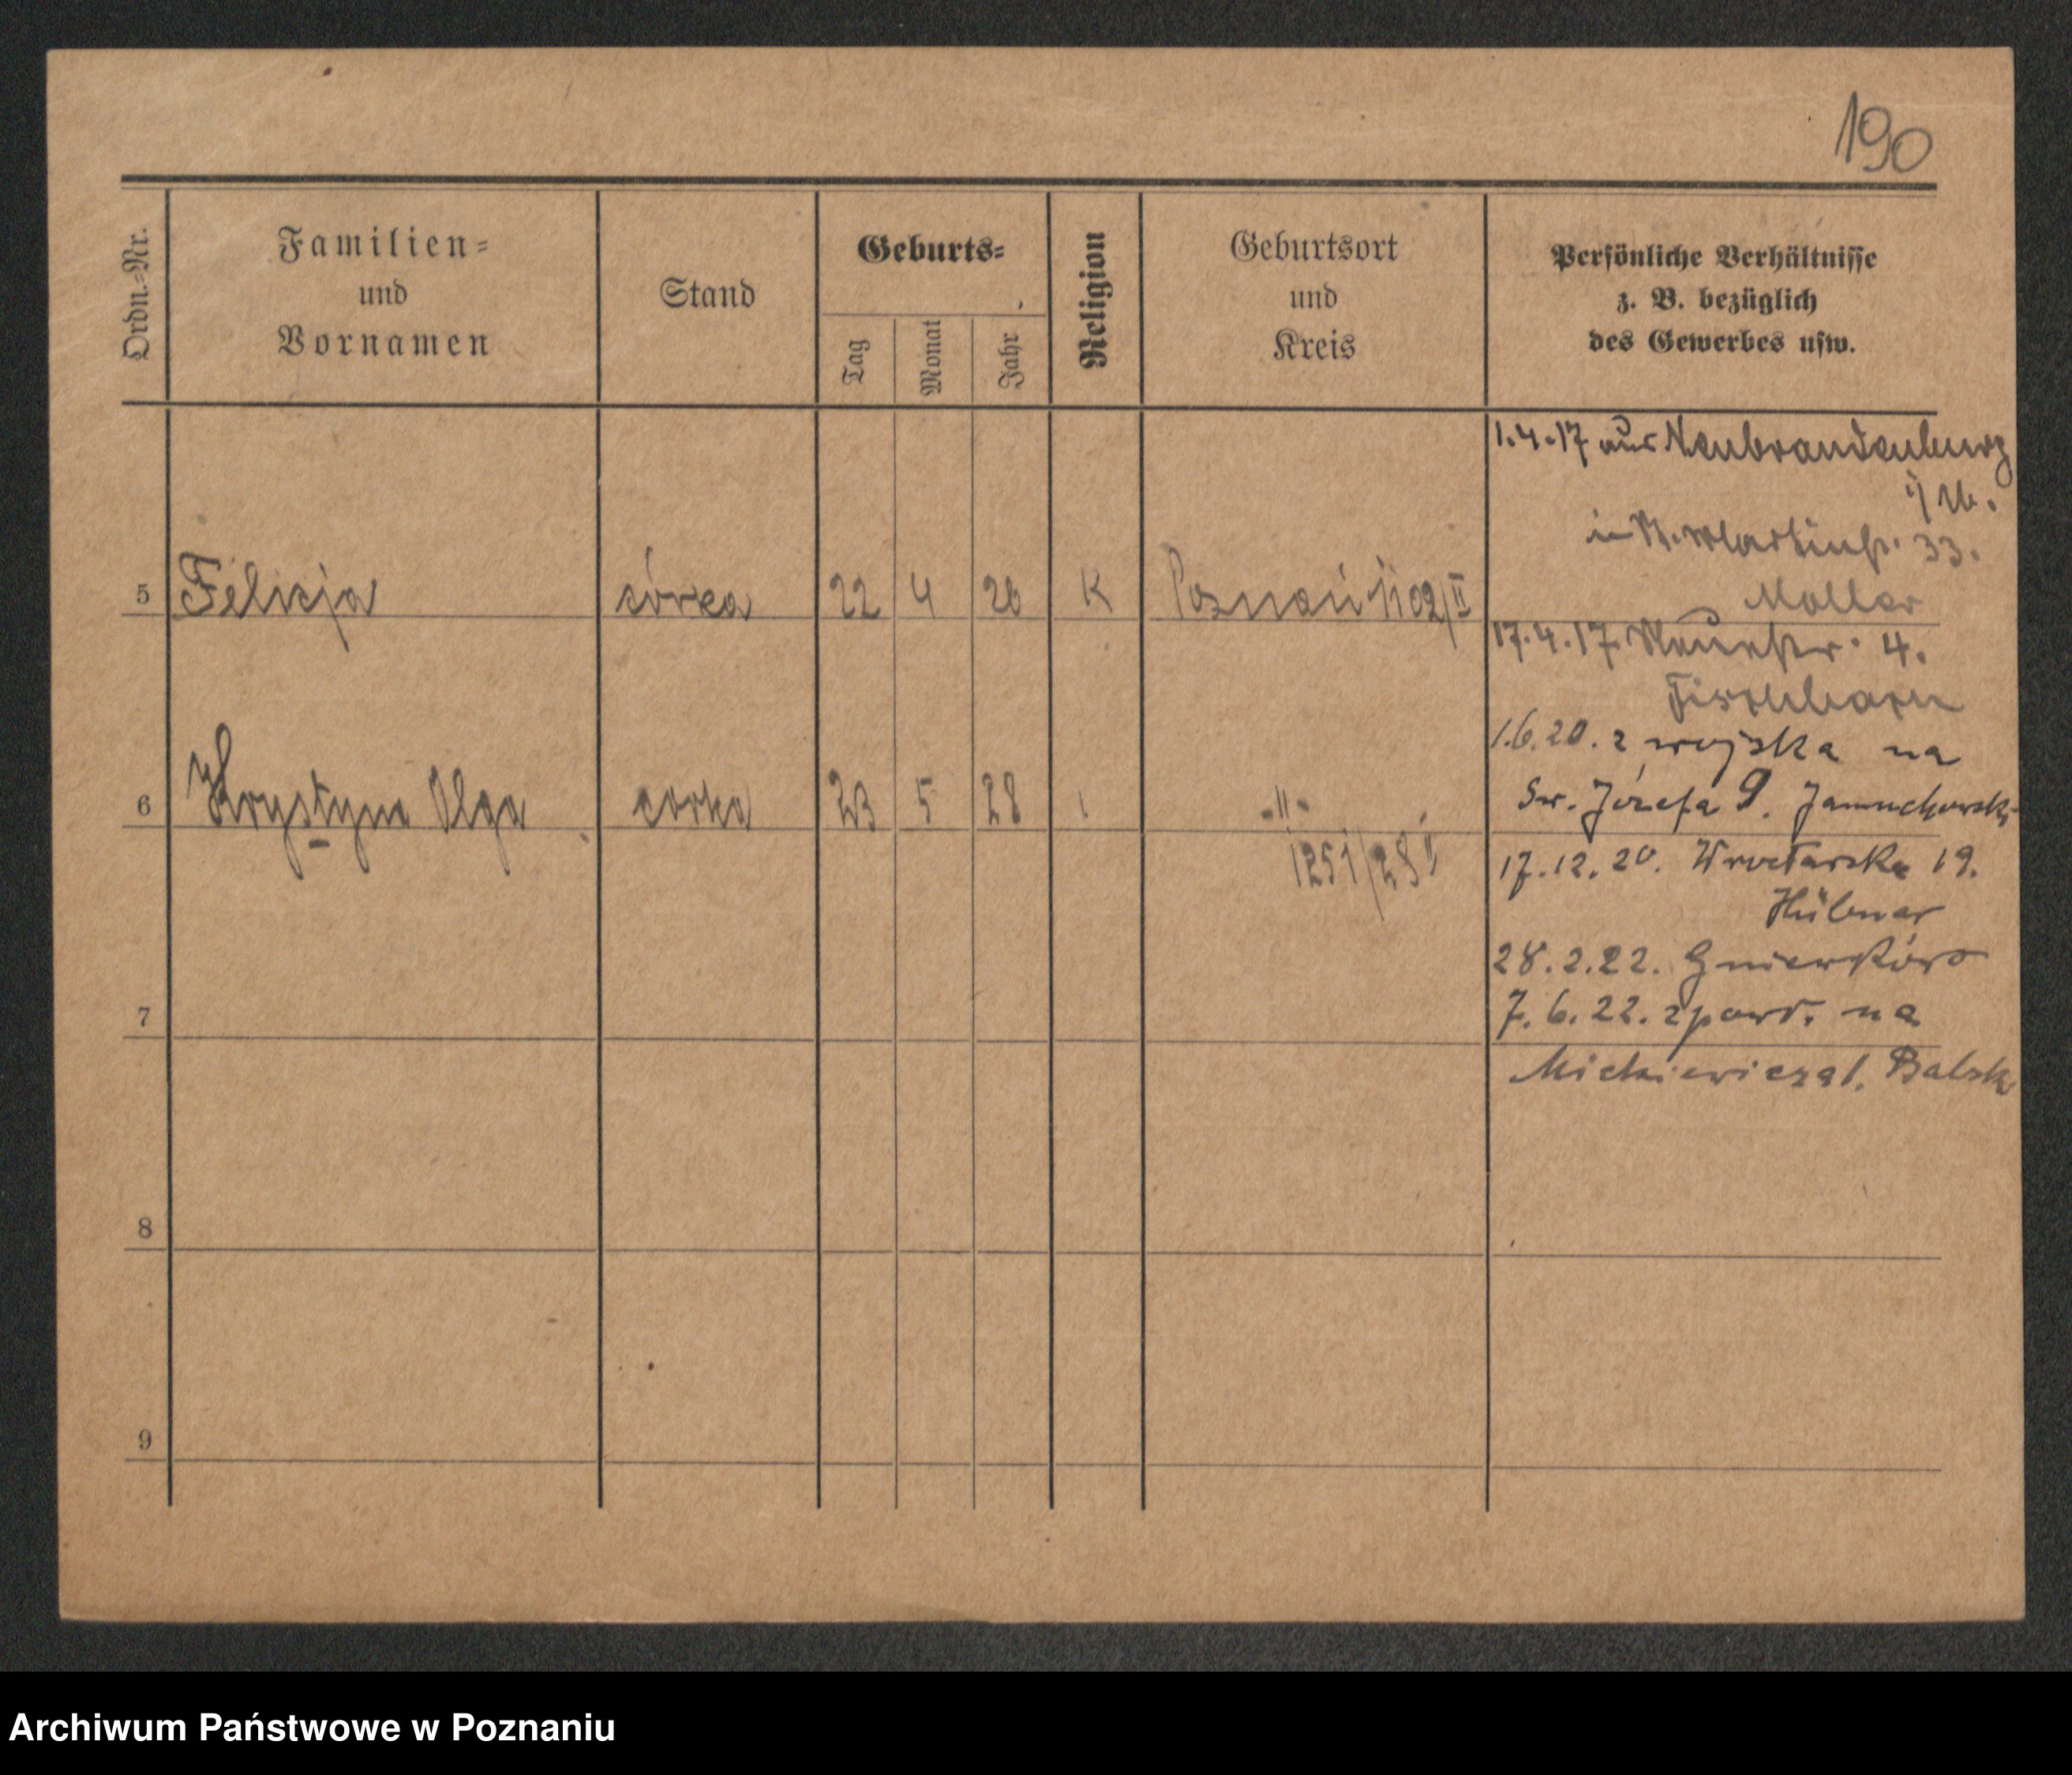 190
Ordn.-Nr.
Familien-
und
Vornamen
Stand
Geburts-
Tag
Monat
Jahr
Religion
Geburtsort
und
Kreis
Persönliche Verhältnisse
z. B. bezüglich
des Gewerbes usw.
1.4.17 aus Neubrandenburg
5 Felicja córka 22 4 26 K Poznań 1102/II
33.
Moller
17.4.17 4.
1.6.20. z wojska na
6 Krystyna Olga corka 23 5 28 -"-
1251/28 II
Św. Józefa 9.
17.12.20. Wrocławska 19.
Hübner
28.2.22. Gniewków
7
7.6.22. zpowr. na
Mickiewicza 1.
8
9
Archiwum Państwowe w Poznaniu